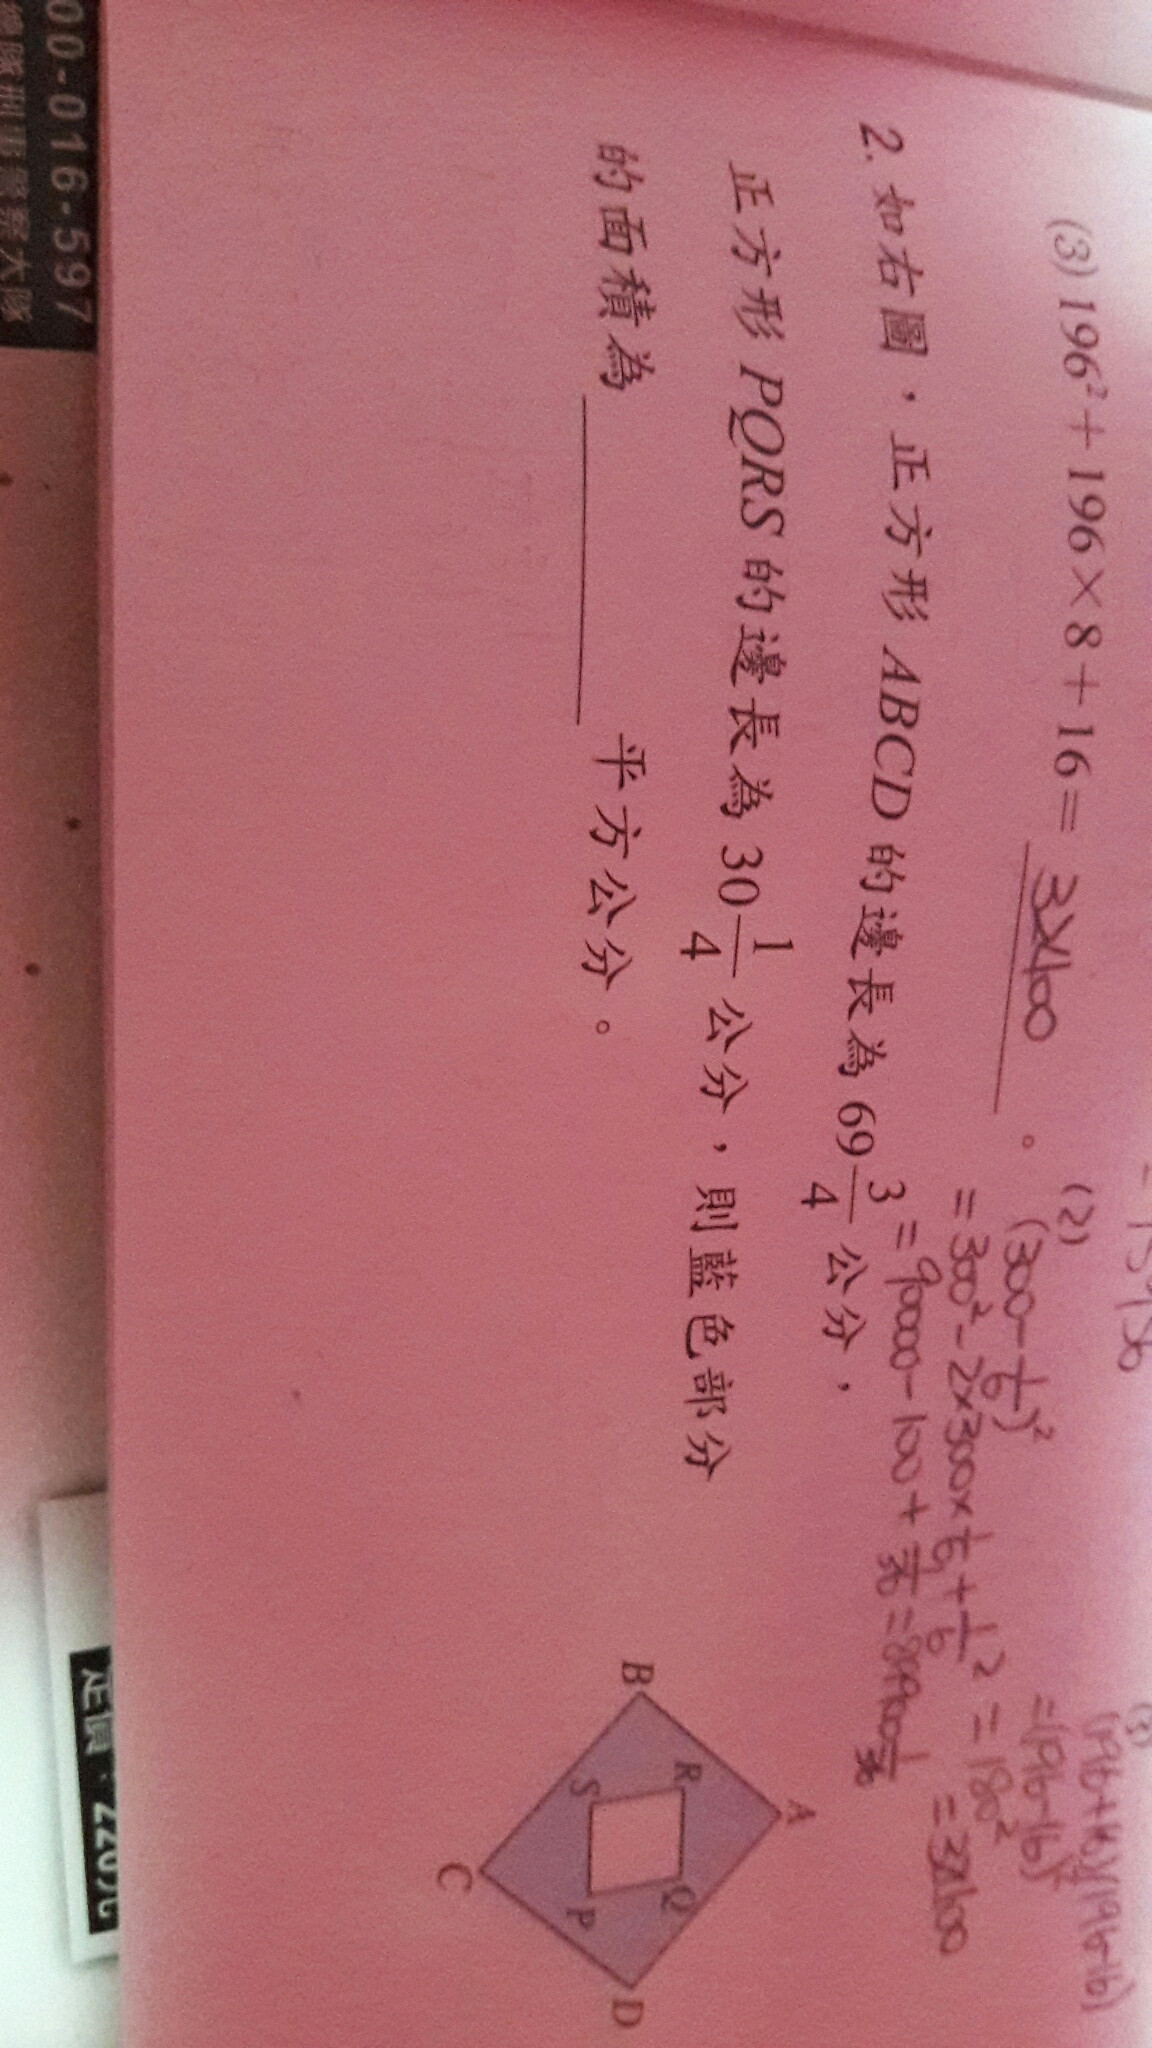 (3) 196² + 196 × 8 + 16 = 32400 。
2. 如右圖，正方形 ABCD 的邊長為 69 3/4 公分，
正方形 PQRS 的邊長為 30 1/4 公分，則藍色部分
的面積為 ＿＿＿＿ 平方公分。
(2)
(300 - 1/6)²
= 300² - 2×300× 1/6 + 1/6 ²
= 90000 - 100 + 1/36 = 89900 1/36
(3)
(196+16)(196-16)
= (196-16)²
= 180²
= 32400
A
B
R
S
Q
P
C
D
00-016-597
定價：220元